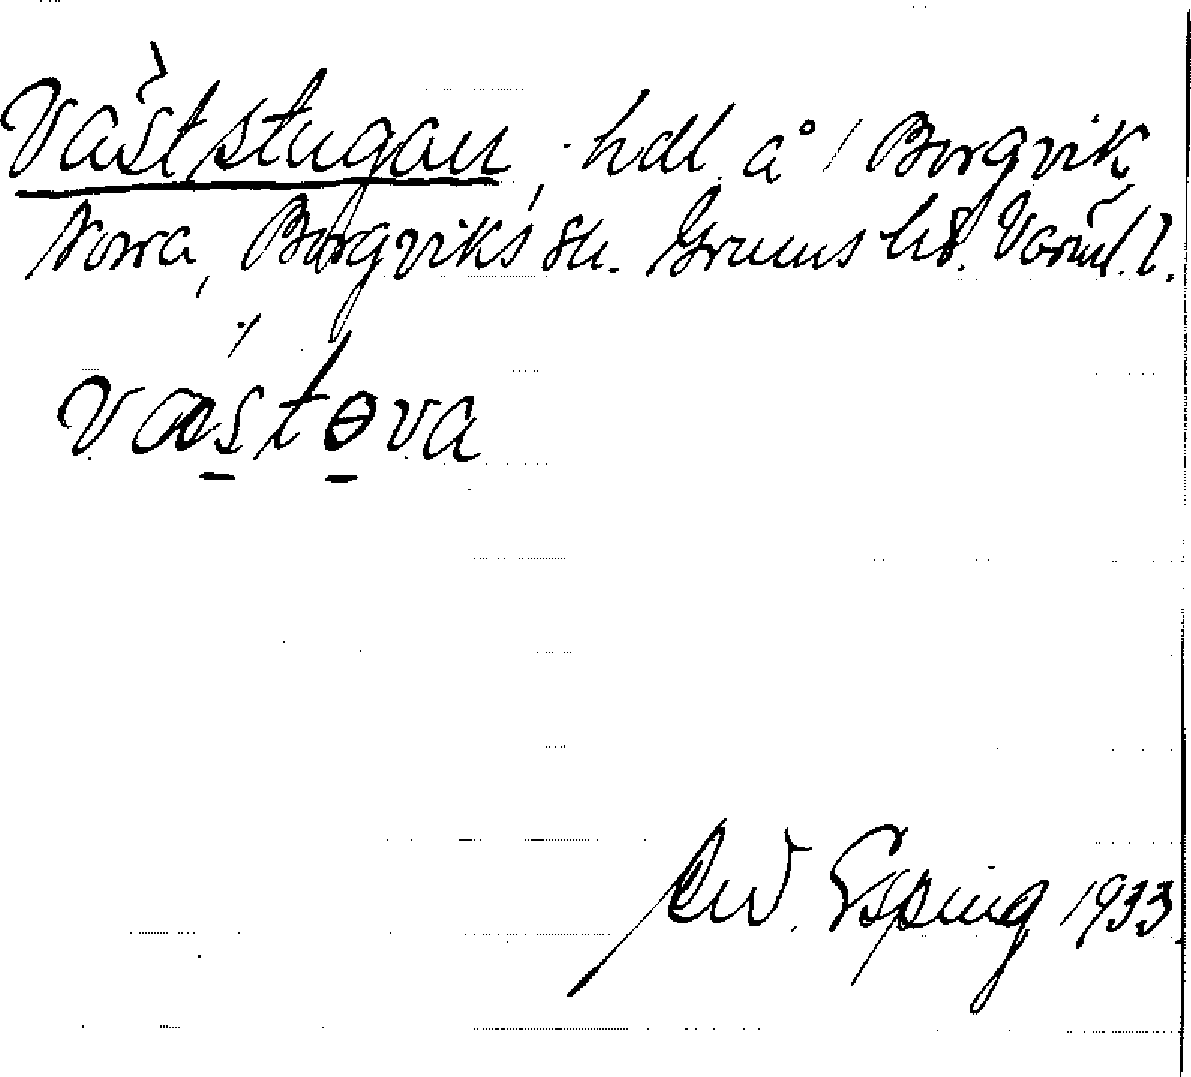 Väststugan, hdl. å / Borgvik
Norra, Borgviks sn. Grums hd. Värml. l.
västɵva
Esping 1933